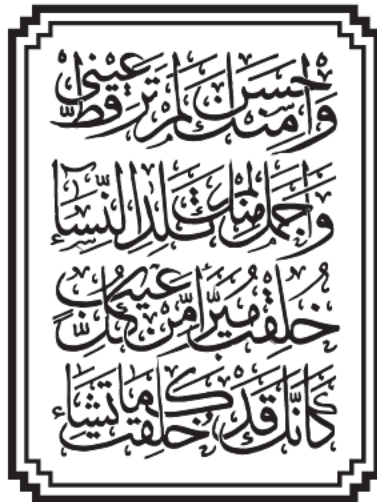 وَأَحْسَنُ مِنْكَ لَمْ تَرَ قَطُّ عَيْنِي
وَأَجْمَلُ مِنْكَ لَمْ تَلِدِ النِّسَاءُ
خُلِقْتَ مُبَرَّأً مِنْ كُلِّ عَيْبٍ
كَأَنَّكَ قَدْ خُلِقْتَ كَمَا تَشَاءُ